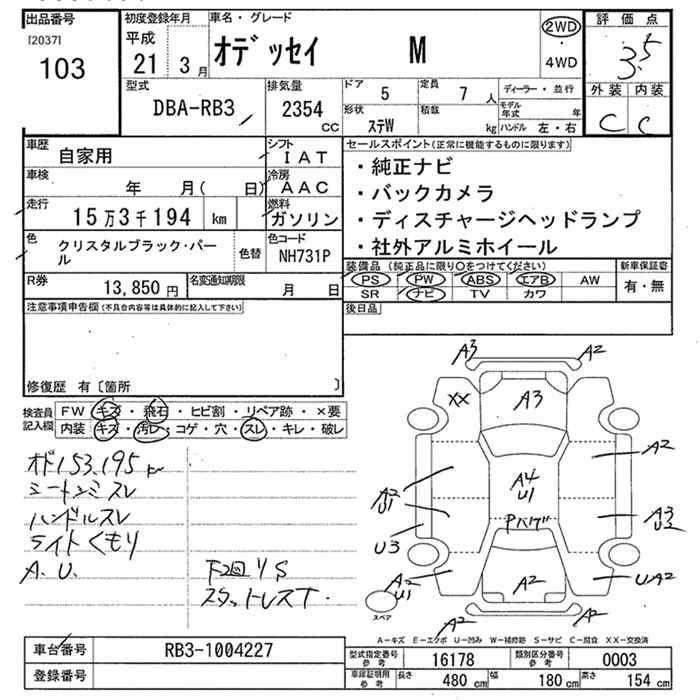 出品番号
[2037]
103
初度登録年月
平成
21 3月
車名・グレード
オデッセイ M
2WD
・
4WD
評価点
3.5
外装 内装
C C
型式
DBA-RB3
排気量
2354
CC
ドア 5
定員 7人
形状 ステW
積載 kg
ディーラー・並行
モデル年式 年
ハンドル 左・右
車歴 自家用
シフト IAT
車検 年 月( 日)
冷房 AAC
走行 15万3千194 km
燃料 ガソリン
色 クリスタルブラック・パール
色替
色コード NH731P
R券 13,850円
名変通知期限 月 日
セールスポイント(正常に機能するものに限ります)
・純正ナビ
・バックカメラ
・ディスチャージヘッドランプ
・社外アルミホイール
装備品(純正品に限り○をつけてください)
新車保証書
PS PW ABS エアB AW
有・無
SR ナビ TV カワ
後日品
注意事項申告欄(不具合内容等は具体的に記入して下さい)
修復歴 有〔箇所 〕
検査員記入欄
FW キズ・飛石・ヒビ割・リペア跡・×要
内装 キズ・汚レ・コゲ・穴・スレ・キレ・破レ
オド153,195km
シートシミスレ
ハンドルスレ
ライトくもり
A.U.
下廻りS
スタットレスT.
A3 A2
XX A3
A2
A4
U1
A2
U1
Pハゲ
A3
U2
U3
A2
U1
A2
UA2
A2
A2
スペア
A−キズ E−エクボ U−凹み W−補修跡 S−サビ C−腐食 XX−交換済
車台番号 RB3-1004227
登録番号
型式指定番号 参考 16178
類別区分番号 参考 0003
車庫証明用 参考
長さ 480 cm
幅 180 cm
高さ 154 cm